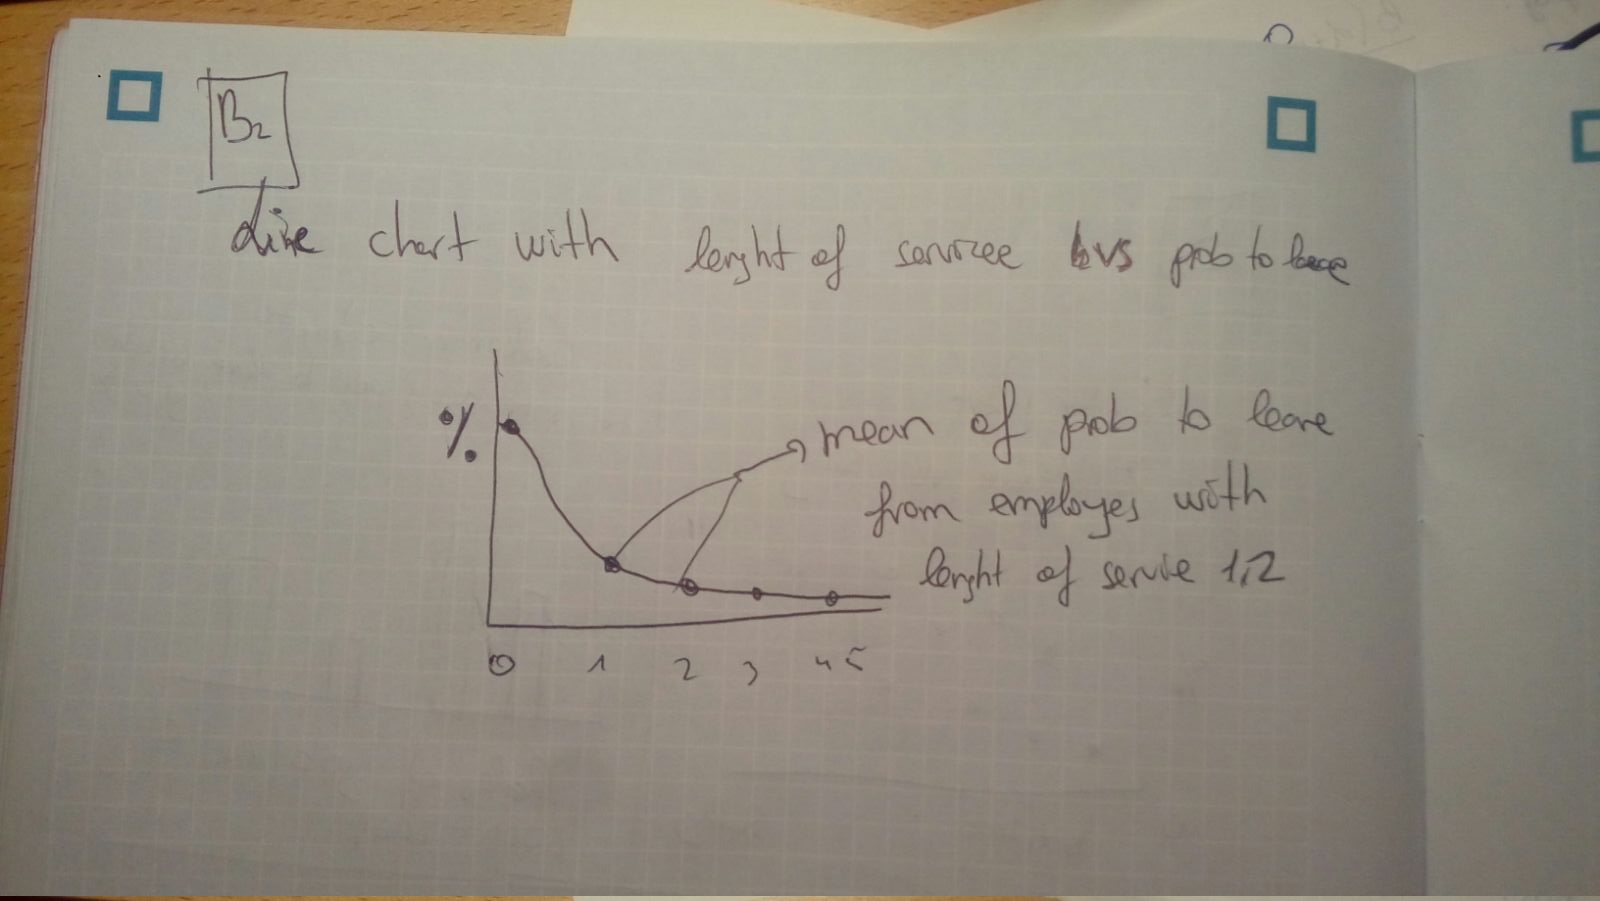 B2
Line chart with lenght of servicee vs prob to leave
%
mean of prob to leave
from employes with
lenght of servie 1,2
0 1 2 3 4 5